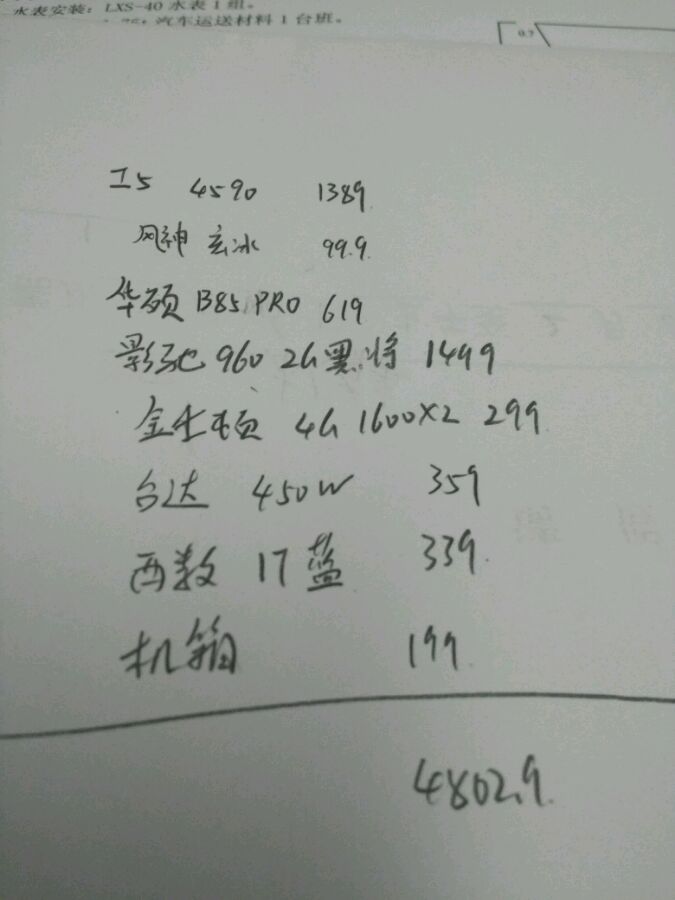 水表安装：LXS-40 水表 1 组。
汽车运送材料 1 台班。
0.7
I5 4590 1389
风神 玄冰 99.9
华硕 B85 PRO 619
影驰 960 2G 黑将 1499
金士顿 4G 1600X2 299
台达 450W 359
西数 1T 蓝 339
机箱 199
4802.9